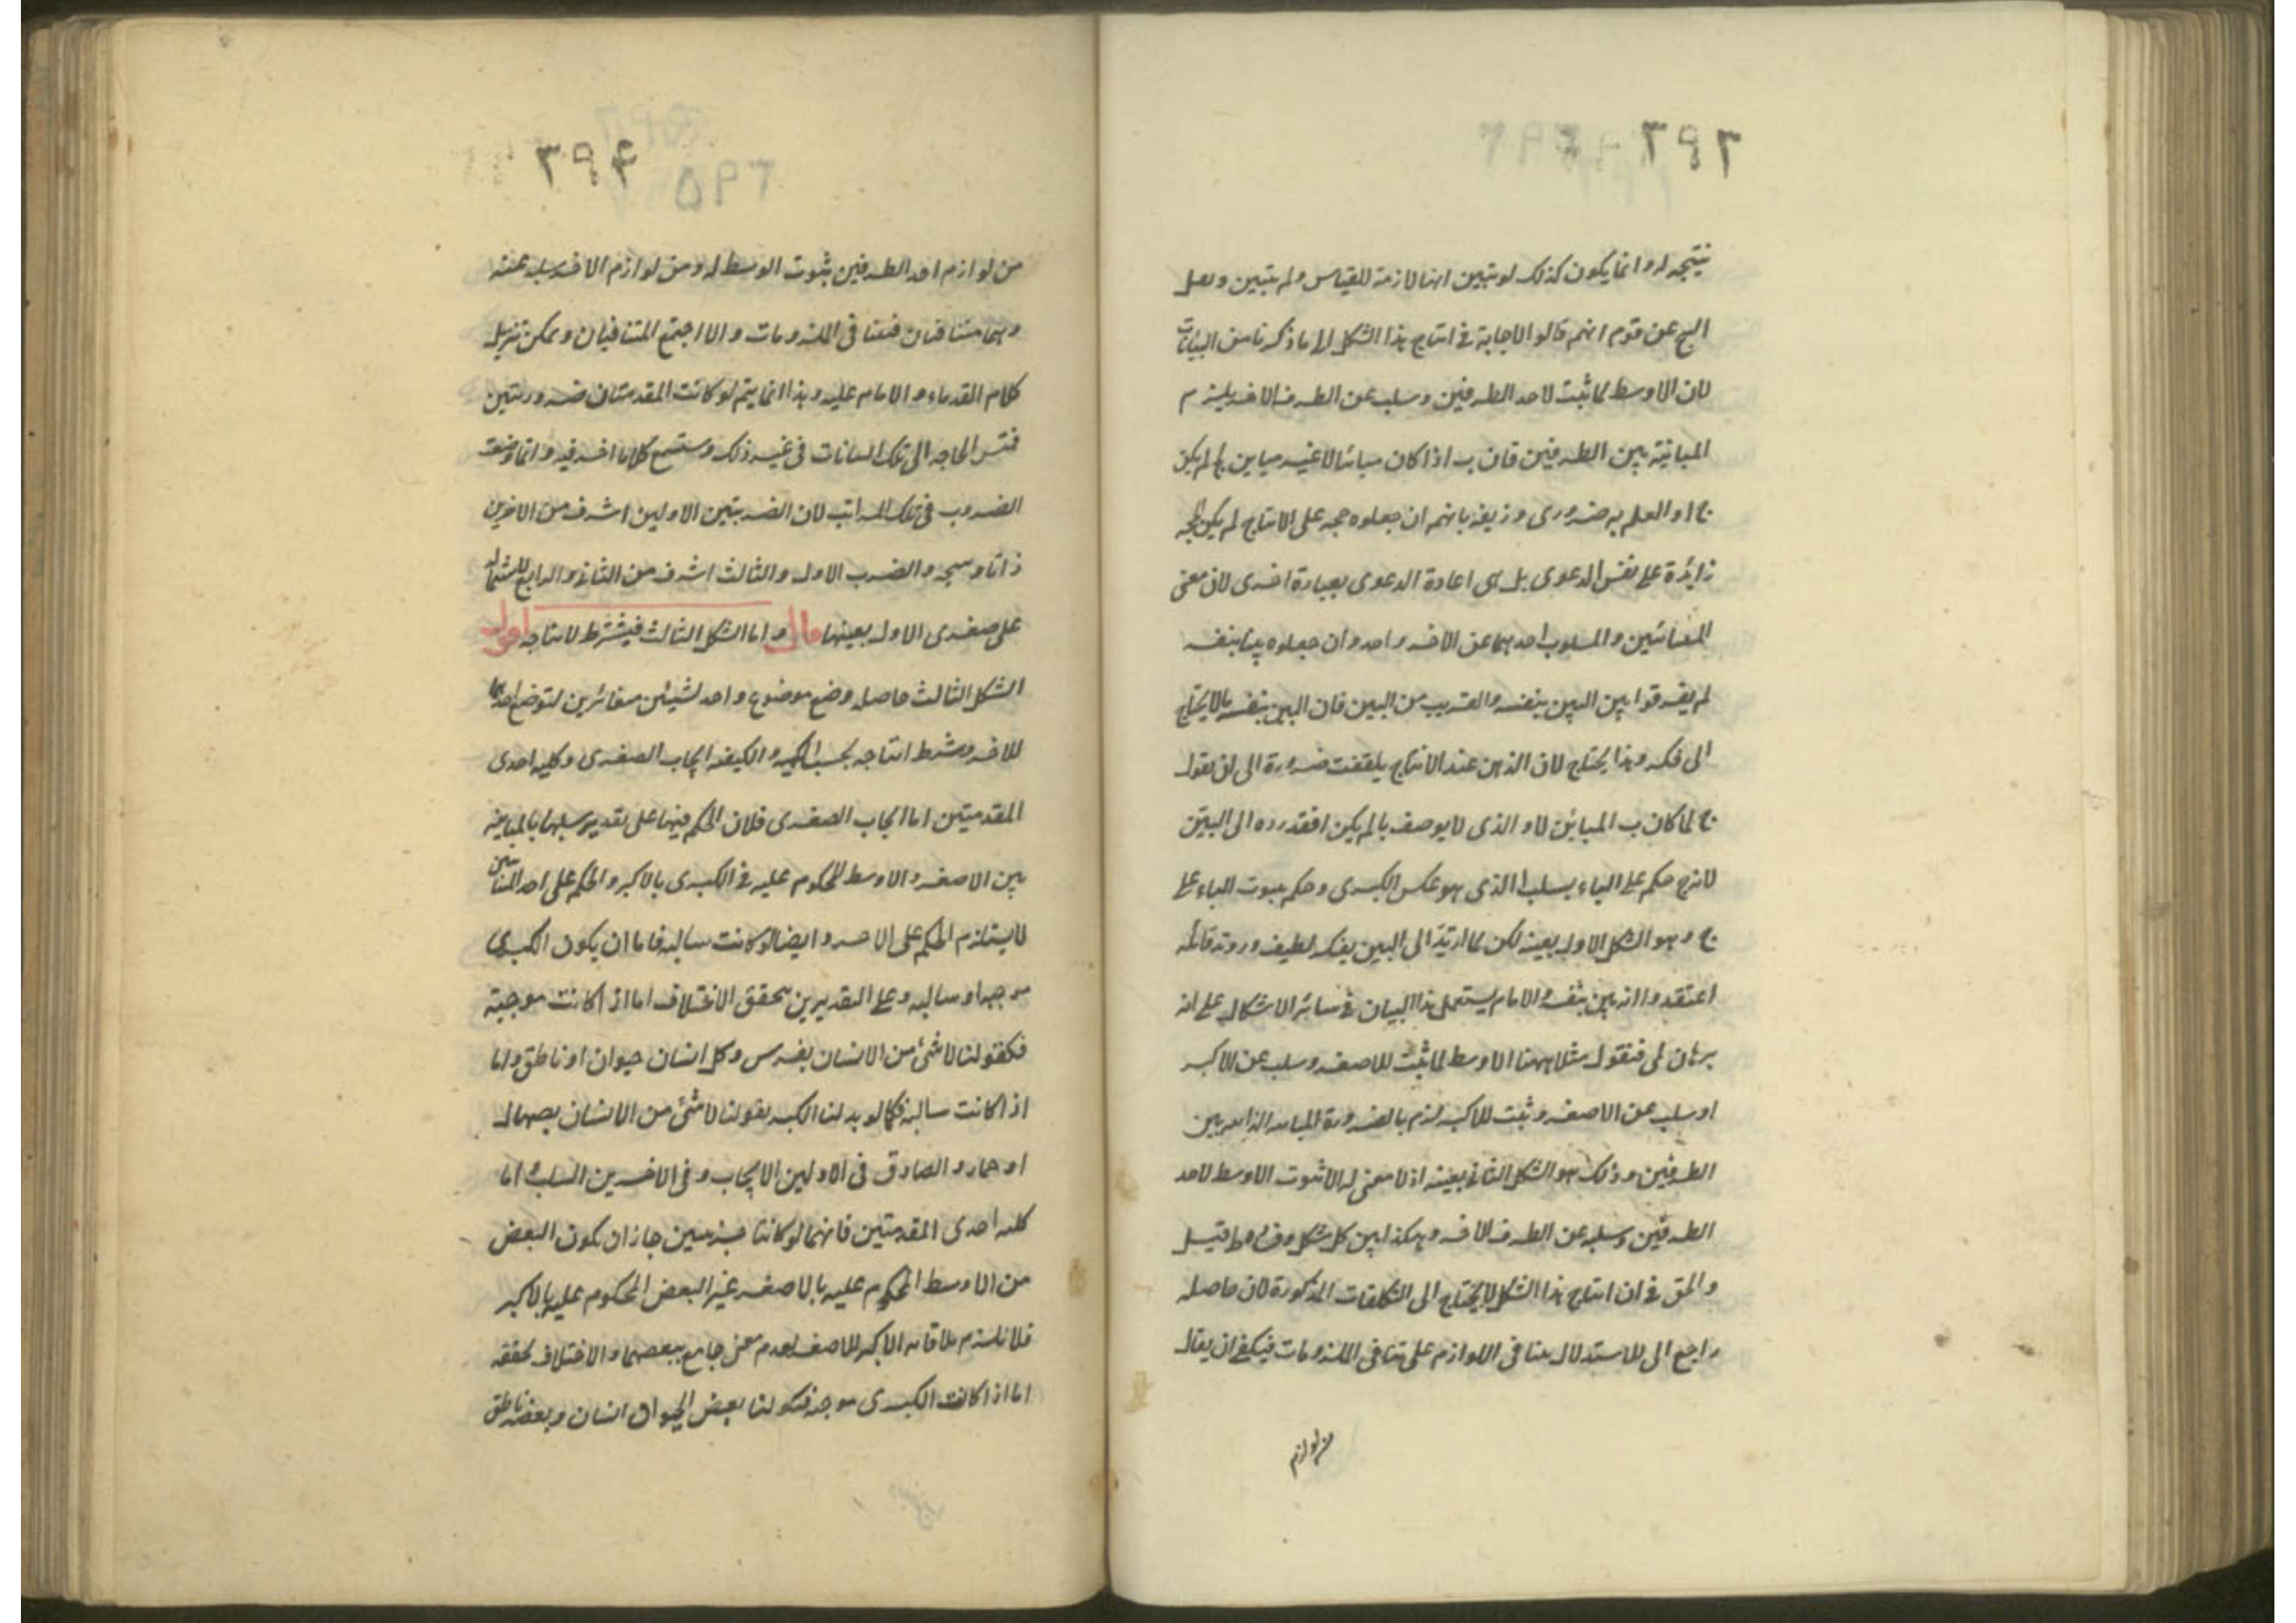 ٢٩٣
نتيجه له وانما يكون كذلك لو تبين انها لازمة للقياس ولم يتبين ونقل
الشيخ عن قوم انهم قالوا لا حاجة في انتاج هذا الشكل الى ما ذكرنا من البيانات
لان الاوسط لما ثبت لاحد الطرفين وسلب عن الطرف الاخر يلزم
المباينة بين الطرفين فان ب اذا كان مباينا لا غير مباين لج لم يكن
ج ا والعلم به ضروري وزيفه بانهم ان جعلوه حجه على الانتاج لم يكن الحجه
زايدة على نفس الدعوى بل هى اعادة الدعوى بعبارة اخرى لان معنى
المتباينين والمسلوب احدهما عن الاخر واحد وان جعلوه بينا بنفسه
لم يفرقوا بين البين بنفسه والقريب من البين فان البين بنفسه مالا يحتاج
الى فكر وهذا يحتاج لان الذهن عند الانتاج يلتفت ضرورة الى ان يقول
ج لما كان ب المباين لا والذى لا يوصف با لم يكن ا فقد رده الى البين
لانه ح حكم على الباء بسلب ا الذى هو عكس الكبرى وحكم بثبوت الباء على
ج وهو الشكل الاول بعينه لكن لما ارتد الى البين بفكر لطيف وروية قائمه
اعتقدوا انه بين بنفسه والامام يستعمل هذا البيان في سائر الاشكال على انه
برهان لمى فنقول مثلا ههنا الاوسط لما ثبت للاصغر وسلب عن الاكبر
او سلب عن الاصغر وثبت للاكبر لزم بالضرورة المباينه الذاتيه بين
الطرفين وذلك هو الشكل الثاني بعينه اذ لا معنى له الا ثبوت الاوسط لاحد
الطرفين وسلبه عن الطرف الاخر وهكذا بين كل شكل وفيه ما قيل
والحق في ان انتاج هذا الشكل لا يحتاج الى التكلفات المذكورة لان حاصله
راجع الى الاستدلال بتنافى اللوازم على تنافى الملزومات فيكفى ان يقال
من لوازم
٣٩٤
٢٩٥
من لوازم احد الطرفين ثبوت الوسط له ومن لوازم الاخر سلبه عنه
وهما متنافيان فتنافى الملزومات والا اجتمع المتنافيان ويمكن تنزيل
كلام القدماء والامام عليه وهذا انما يتم لو كانت المقدمتان ضروريتين
الحاجه الى تلك البيانات فى غير ذلك وستسمع كلاما اخر فيه وانما وضعت
الضروب فى تلك المراتب لان الضربين الاولين اشرف من الاخرين
ذاتا ونتيجه والضرب الاول والثالث اشرف من الثانى والرابع لاشتمالهما
على صغرى الاول بعينها قال واما الشكل الثالث فيشترط لانتاجه اقول
الشكل الثالث حاصله وضع موضوع واحد لشيئين متغائرين لتوضع احدهما
للاخر وشرط انتاجه بحسب الكميه والكيفيه ايجاب الصغرى وكليه احدى
المقدمتين اما ايجاب الصغرى فلان الحكم فيها على تقدير سلبها بالمباينه
بين الاصغر والاوسط المحكوم عليه فى الكبرى بالاكبر والحكم على احد المتباينين
لا يستلزم الحكم على الاخر وايضا لو كانت سالبه فاما ان يكون الكبرى
موجبه او سالبه وعلى التقديرين يتحقق الاختلاف اما اذا كانت موجبة
فكقولنا لا شئ من الانسان بفرس وكل انسان حيوان او ناطق واما
اذا كانت سالبه فكما لو بدلنا الكبرى بقولنا لا شئ من الانسان بصهال
او حمار والصادق فى الاولين الايجاب وفى الاخرين السلب واما
كليه احدى المقدمتين فانهما لو كانتا جزئيتين جاز ان يكون البعض
من الاوسط المحكوم عليه بالاصغر غير البعض المحكوم عليه بالاكبر
فلا يلزم ملاقاه الاكبر للاصغر لعدم معنى جامع بينهما والاختلاف يحققه
اما اذا كانت الكبرى موجبه فكقولنا بعض الحيوان انسان وبعضه ناطق